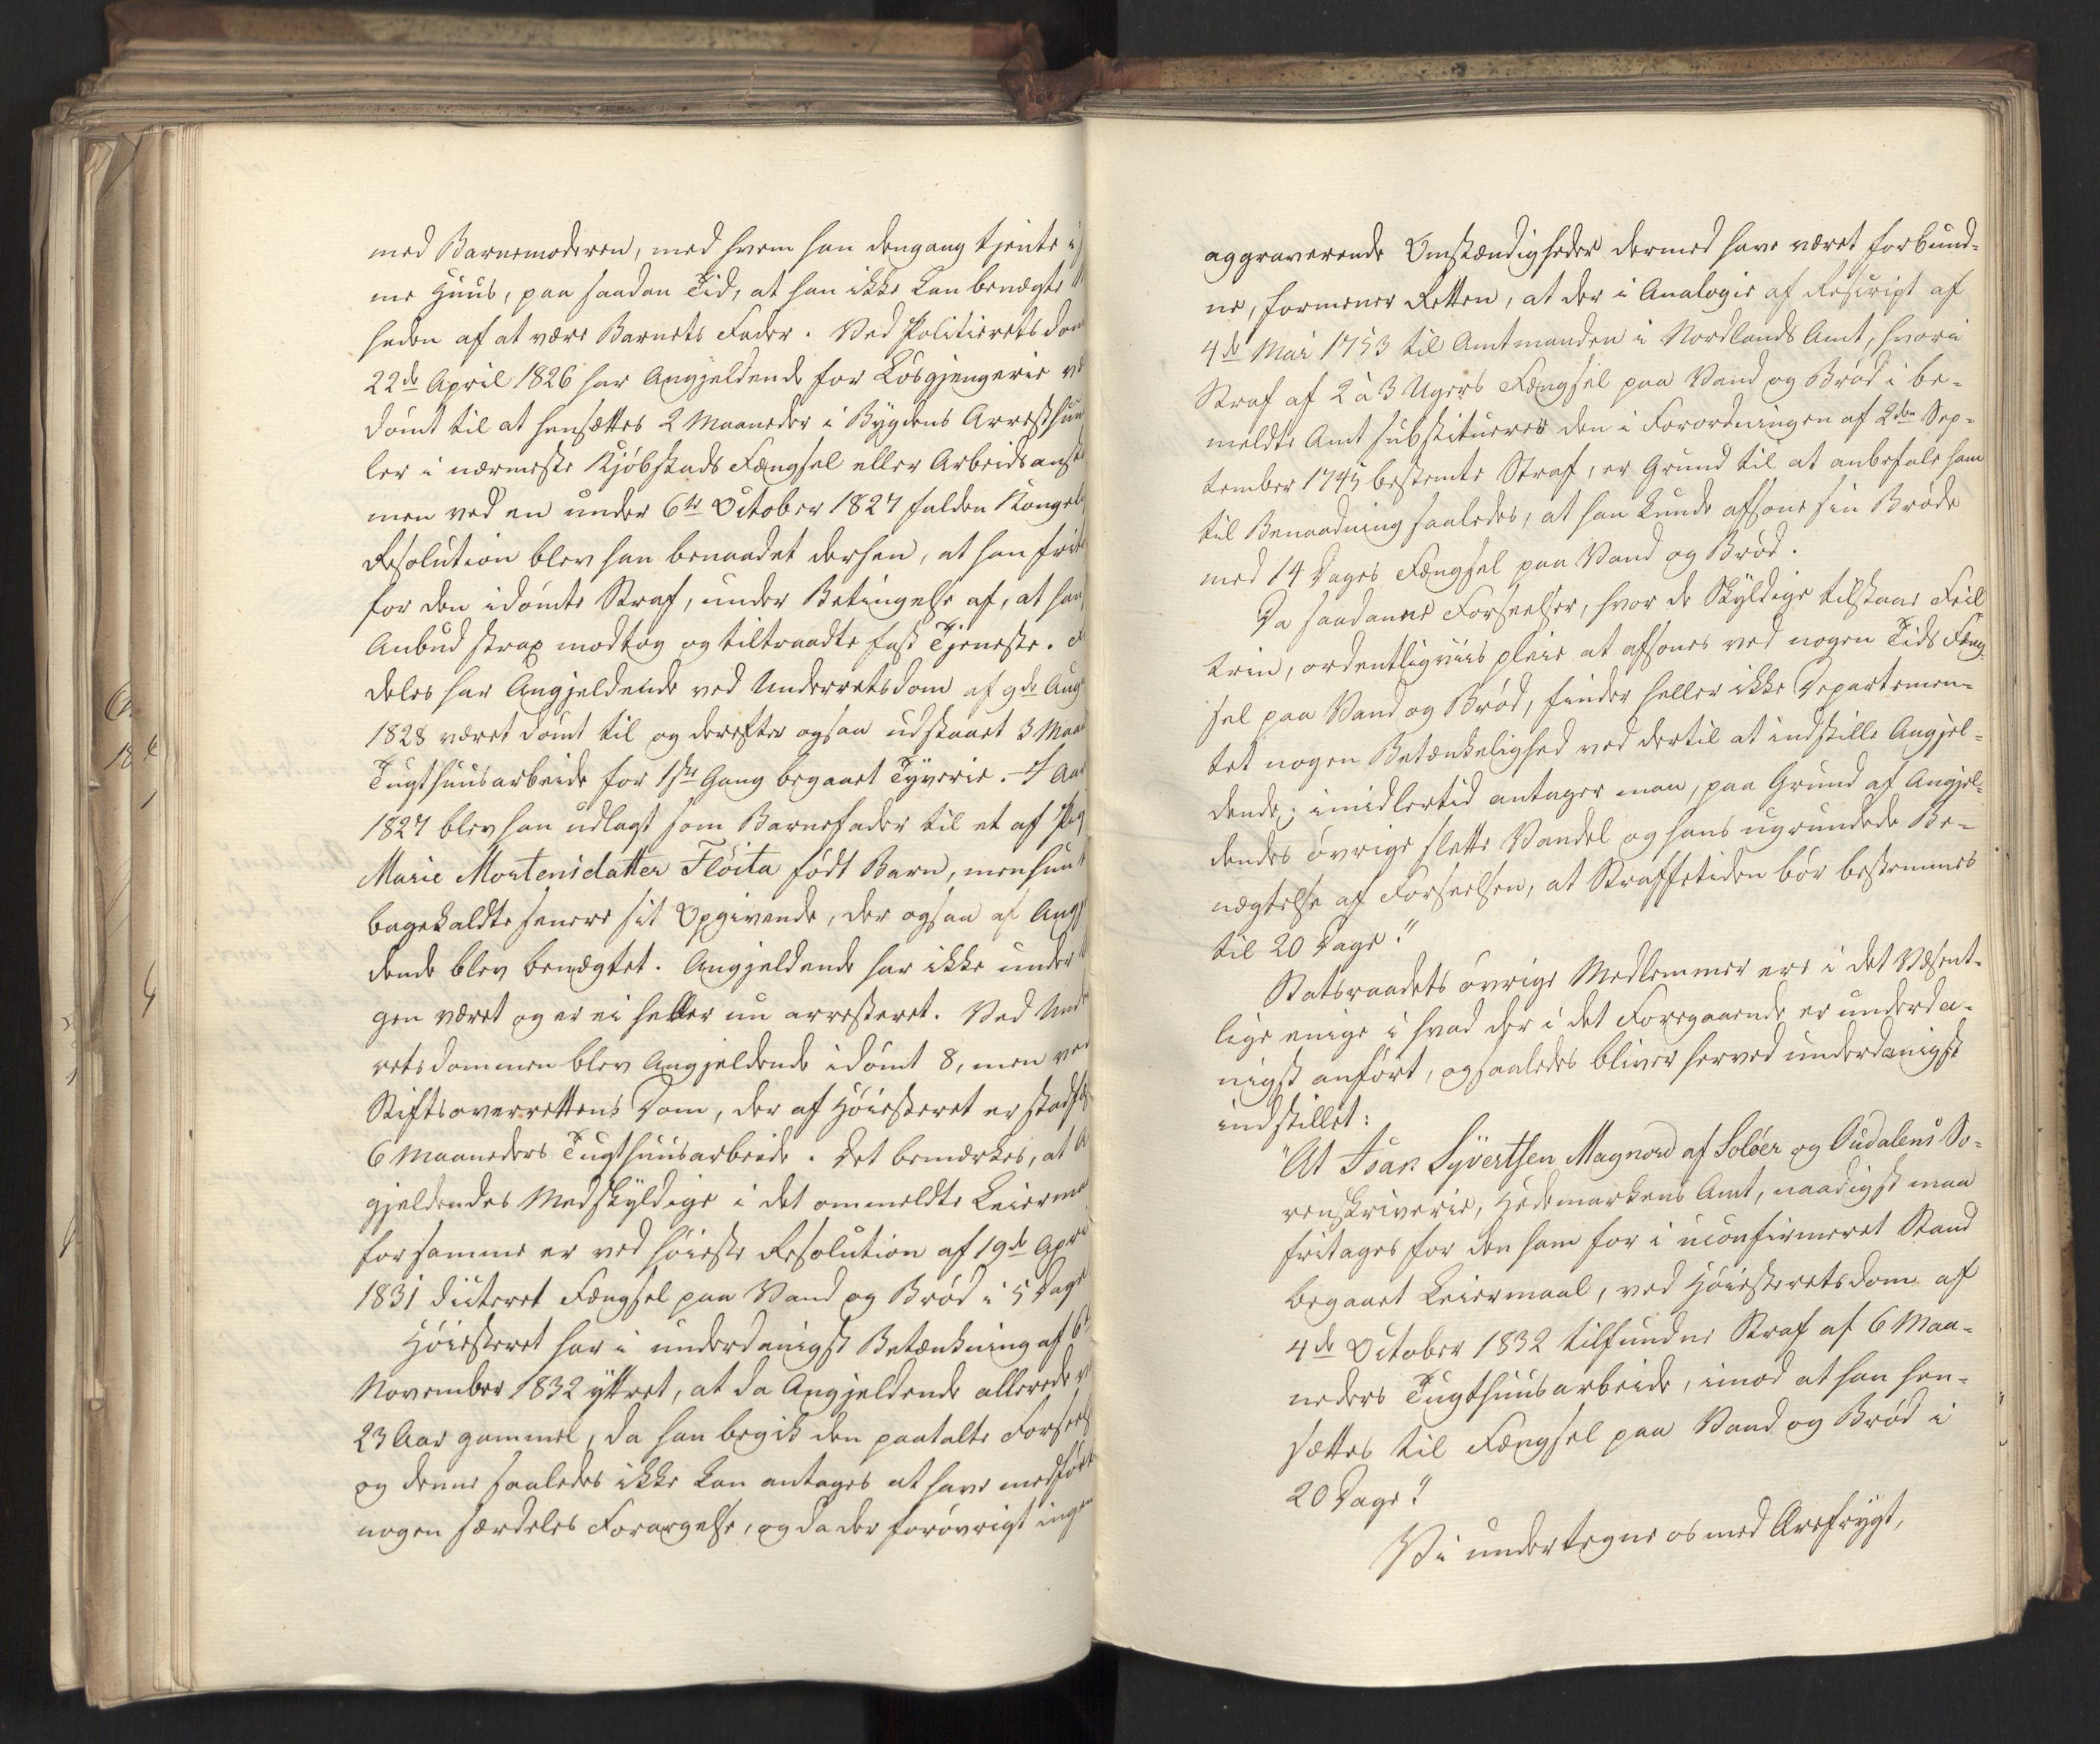 med Barnemoderen, med hvem han dengang tjente i
me Huus, paa saadan Tid, at han ikke kan benægte
heden af at være Barnets Fader. Ved Politieretsdom
22de April 1826 har Angjeldende for Løsgjengerie
dømt til at hensættes 2 Maaneder i Bygdens Arresthuus
ler i nærmeste Kjøbstads Fængsel eller Arbeidsanst
men ved en under 6te October 1827 falden Kongel
Resolution blev han benaadet derhen, at han frit
for den idømte Straf, under Betingelse af, at han
Anbud strax modtog og tiltraadte fast Tjeneste.
deles har Angjeldende ved Underretsdom af 9de Aug
1828 været dømt til og derefter ogsaa udstaaet 3 Maa
Tugthuusarbeide for 1ste Gang begaaet Tyverie. I Aar
1827 blev han udlagt som Barnefader til et af Pig
Marie Mortensdatter Fløita født Barn, men hun
bagekaldte senere sit Opgivende, der ogsaa af Angj
dende blev benægtet. Angjeldende har ikke under
gen været og er ei heller nu arresteret. Ved Unde
retsdommen blev Angjeldende idømt 8, men ved
Stiftsoverrettens Dom, der af Høiesteret er stadfæs
6 Maaneders Tugthuusarbeide. Det bemærkes, at A
gjeldendes Medskyldige i det ommeldte Leierma
for samme er ved høieste Resolution af 19de Apri
1831 dicteret Fængsel paa Vand og Brød i 5 Dage
Høiesteret har i underdanigst Betænkning af 6te
November 1832 yttret, at da Angjeldende allerede
23 Aar gammel, da han begik den paatalte Forseels
og denne saaledes ikke kan antages at have medført
nogen særdeles Forargelse, og da der forøvrigt ingen
aggraverende Omstændigheder dermed have været forbund-
ne, formener Retten, at der i Analogie af Rescript af
4de Mai 1753 til Amtmanden i Nordlands Amt, hvori
Straf af 2 à 3 Ugers Fængsel paa Vand og Brød i be-
meldte Amt substitueres den i Forordningen af 2den Sep-
tember 1745 bestemte Straf, er Grund til at anbefale ham
til Benaadning saaledes, at han kunde afsone sin Brøde
med 14 Dages Fængsel paa Vand og Brød.
Da saadanne Forseelser, hvor de Skyldige tilstaae Feil-
trin, ordentligviis pleie at afsones ved nogen Tids Fæng-
sel paa Vand og Brød, finder heller ikke Departemen-
tet nogen Betænkelighed ved dertil at indstille Angjel-
dende; imidlertid antager man, paa Grund af Angjel-
dendes øvrige slette Vandel og hans ugrundede Be-
nægtelse af Forseelsen, at Straffetiden bør bestemmes
til 20 Dage."
Statsraadets øvrige Medlemmer ere i det Væsent-
lige enige i hvad der i det Foregaaende er underda-
nigst anført, og saaledes bliver herved underdanigst
indstillet:
"At Isak Syvertsen Magnord af Soløer og Oudalens So-
renskriverie, Hedemarkens Amt, naadigst maa
fritages for den ham for i uconfirmeret Stand
begaaet Leiermaal, ved Høiesteretsdom af
4de October 1832 tilfundne Straf af 6 Maa-
neders Tugthuusarbeide, imod at han hen-
sættes til Fængsel paa Vand og Brød i
20 Dage."
Vi undertegne os med Ærefrygt,